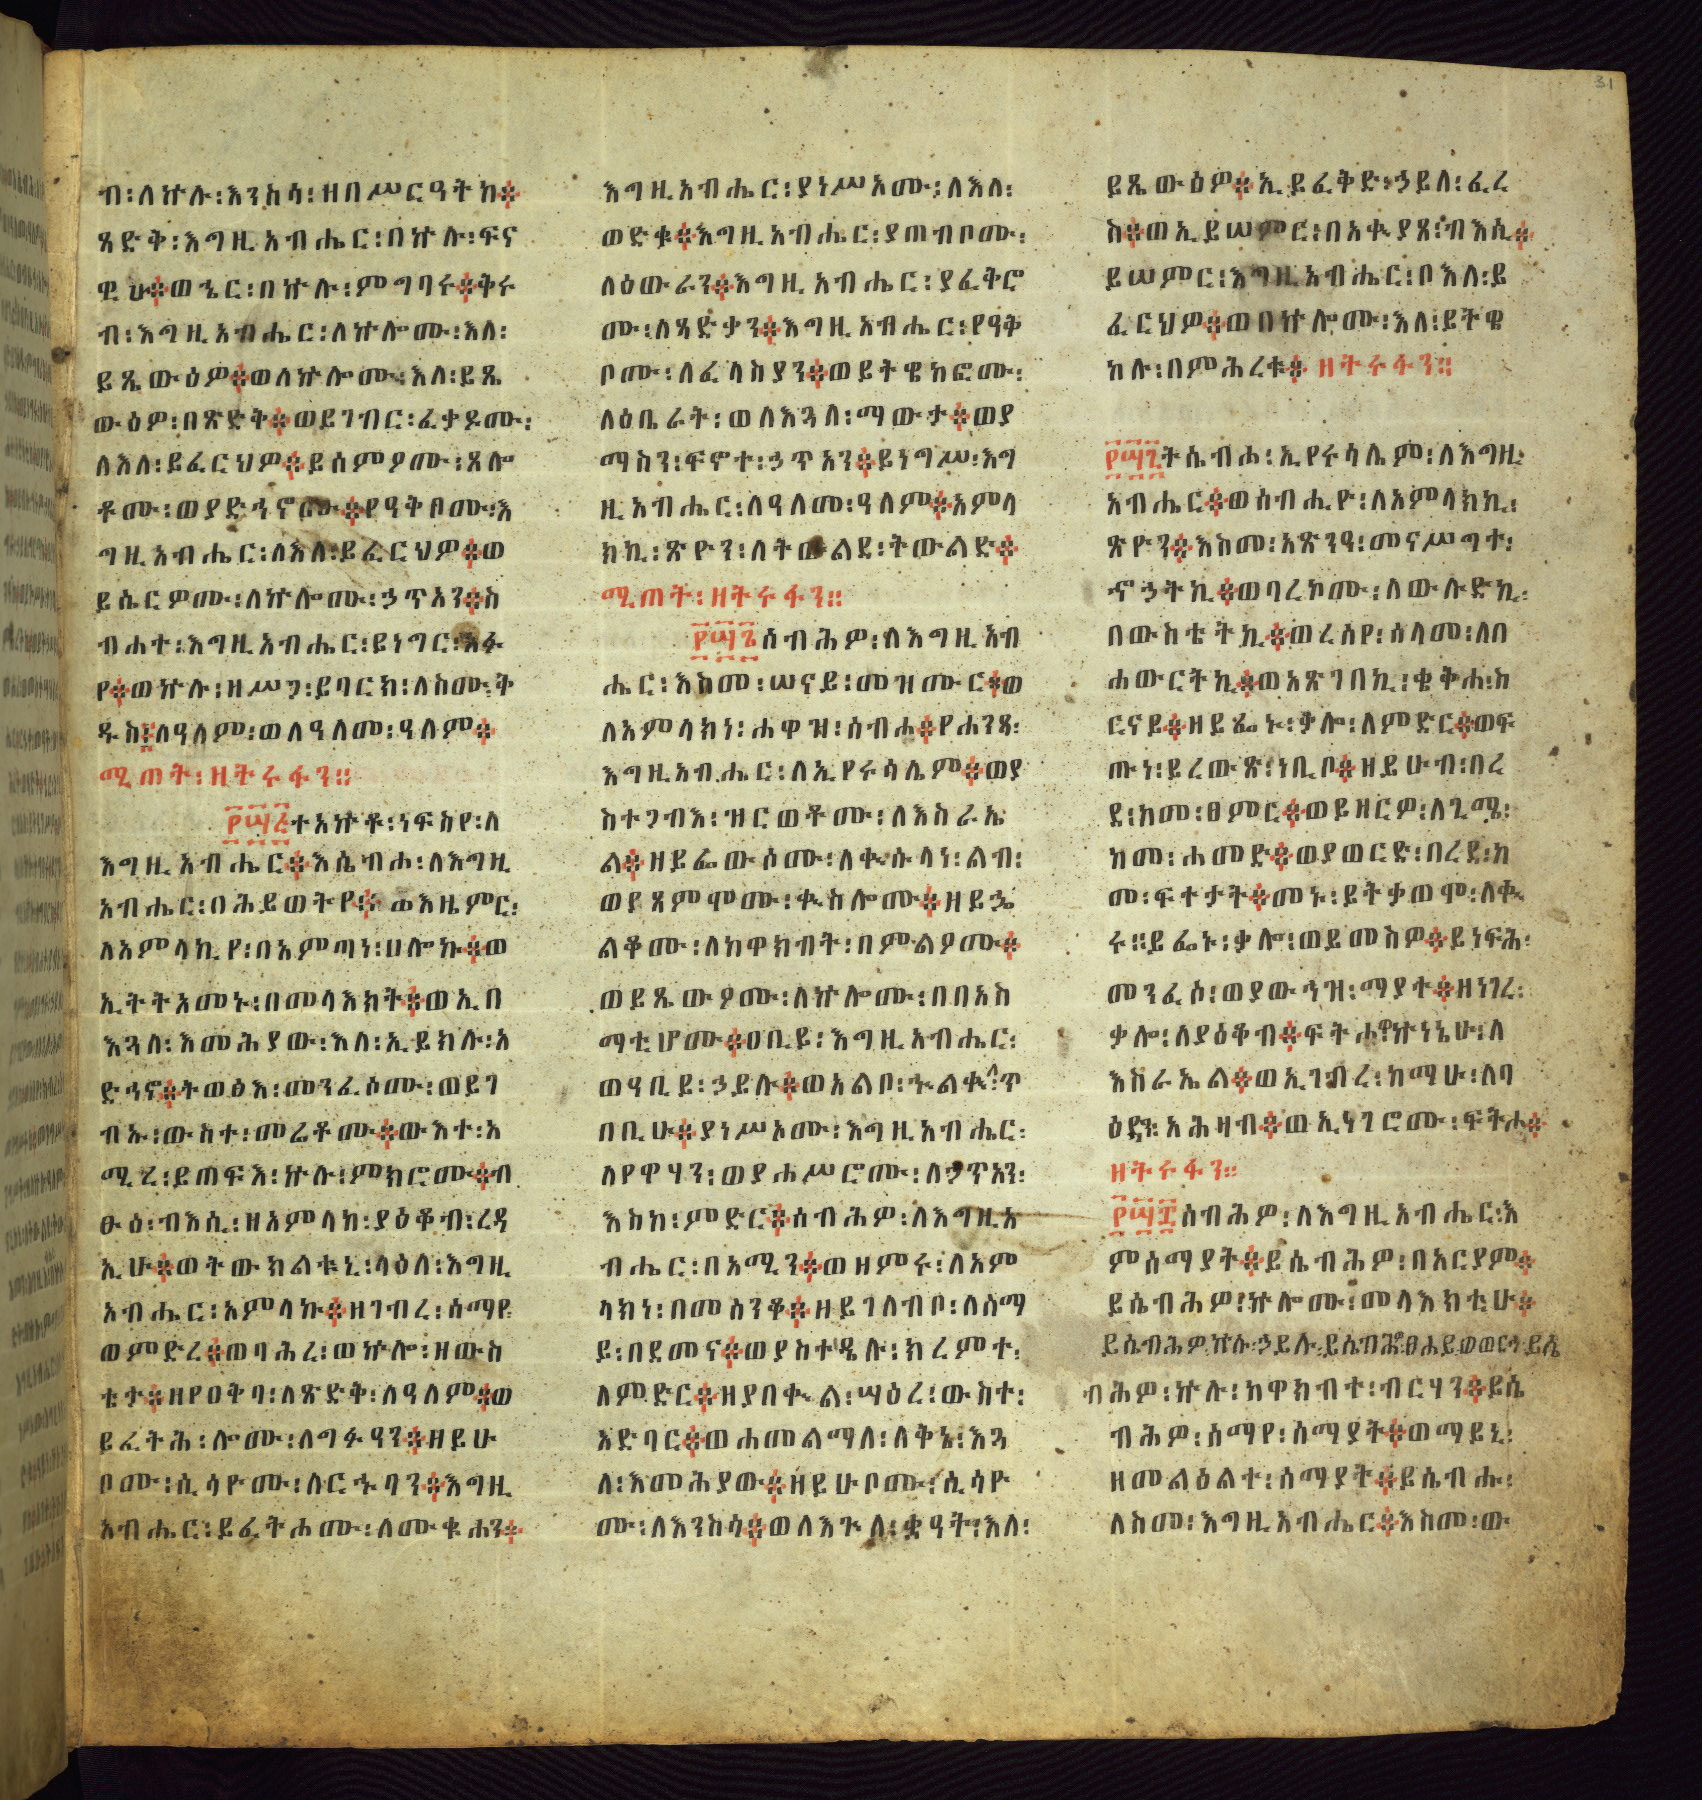 31
ብ፡ለኵሉ፡እንስሳ፡ዘበሥርዓትከ።
ጻድቅ፡እግዚአብሔር፡በኵሉ፡ፍና
ዊሁ።ወኄር፡በኵሉ፡ምግባሩ።ቅሩ
ብ፡እግዚአብሔር፡ለኵሎሙ፡እለ፡
ይጼውዕዎ።ወለኵሎሙ፡እለ፡ይጼ
ውዕዎ፡በጽድቅ።ወይገብር፡ፈቃዶሙ፡
ለእለ፡ይፈርህዎ።ይሰምዖሙ፡ጸሎ
ቶሙ፡ወያድኅኖሙ።የዓቅቦሙ፡እ
ግዚአብሔር፡ለእለ፡ይፈርህዎ።ወ
ይሴርዎሙ፡ለኵሎሙ፡ኃጥአን።ስ
ብሐተ፡እግዚአብሔር፡ይነግር፡አፉ
የ።ወኵሉ፡ዘሥጋ፡ይባርክ፡ለስሙ፡ቅ
ዱስ፡ለዓለም፡ወለዓለመ፡ዓለም።
ሚጠት፡ዘትሩፋን።
፻፵፭ተአኵቶ፡ነፍስየ፡ለ
እግዚአብሔር።እሴብሖ፡ለእግዚ
አብሔር፡በሕይወትየ።ወእዜምር፡
ለአምላኪየ፡በአምጣነ፡ሀሎኩ።ወ
ኢትትአመኑ፡በመላእክት።ወኢበ
እጓለ፡እመሕያው፡እለ፡ኢይክሉ፡አ
ድኅኖ።ትወፅእ፡መንፈሶሙ፡ወይገ
ብኡ፡ውስተ፡መሬቶሙ።ውእተ፡አ
ሚረ፡ይጠፍእ፡ኵሉ፡ምክሮሙ።ብ
ፁዕ፡ብእሲ፡ዘአምላከ፡ያዕቆብ፡ረዳ
ኢሁ።ወትውክልቱኒ፡ላዕለ፡እግዚ
አብሔር፡አምላኩ።ዘገብረ፡ሰማየ
ወምድረ።ወባሕረ፡ወኵሎ፡ዘውስ
ቴታ።ዘየዐቅባ፡ለጽድቅ፡ለዓለም።ወ
ይፈትሕ፡ሎሙ፡ለግፉዓን።ዘይሁ
ቦሙ፡ሲሳዮሙ፡ለርኁባን።እግዚ
አብሔር፡ይፈትሖሙ፡ለሙቁሐን።
እግዚአብሔር፡ያነሥኦሙ፡ለእለ፡
ወድቁ።እግዚአብሔር፡ያጠብቦሙ፡
ለዕውራን።እግዚአብሔር፡ያፈቅሮ
ሙ፡ለጻድቃን።እግዚአብሔር፡የዓቅ
ቦሙ፡ለፈላስያን።ወይትዌከፎሙ፡
ለዕቤራት፡ወለእጓለ፡ማውታ።ወያ
ማስን፡ፍኖተ፡ኃጥአን።ይነግሥ፡እግ
ዚአብሔር፡ለዓለመ፡ዓለም።አምላ
ክኪ፡ጽዮን፡ለትውልደ፡ትውልድ።
ሚጠት፡ዘትሩፋን።
፻፵፮ሰብሕዎ፡ለእግዚአብ
ሔር፡እስመ፡ሠናይ፡መዝሙር።ወ
ለአምላክነ፡ሐዋዝ፡ሰብሖ።የሐንጻ፡
እግዚአብሔር፡ለኢየሩሳሌም።ወያ
ስተጋብእ፡ዝርወቶሙ፡ለእስራኤ
ል።ዘይፌውሶሙ፡ለቊሱላነ፡ልብ፡
ወያጸምሞሙ፡ቊስሎሙ።ዘይኌ
ልቆሙ፡ለከዋክብት፡በምልዖሙ።
ወይጼውዖሙ፡ለኵሎሙ፡በበአስ
ማቲሆሙ።ዐቢይ፡እግዚአብሔር፡
ወዓቢይ፡ኃይሉ።ወአልቦ፡ኁልቊ፡ጥ
በቢሁ።ያነሥኦሙ፡እግዚአብሔር፡
ለየዋሃን፡ወያሐሥሮሙ፡ለኃጥአን፡
እስከ፡ምድር።ሰብሕዎ፡ለእግዚአ
ብሔር፡በአሚን።ወዘምሩ፡ለአም
ላክነ፡በመሰንቆ።ዘይገለብቦ፡ለሰማ
ይ፡በደመና።ወያስተዴሉ፡ክረምተ፡
ለምድር።ዘያበቊል፡ሣዕረ፡ውስተ፡
አድባር።ወሐመልማለ፡ለቅኔ፡እጓ
ለ፡እመሕያው።ዘይሁቦሙ፡ሲሳዮ
ሙ፡ለእንስሳ።ወለእጒለ፡ቋዓት፡እለ፡
ይጼውዕዎ።ኢይፈቅድ፡ኃይለ፡ፈረ
ስ።ወኢይሠምር፡በአቊያጸ፡ብእሲ።
ይሠምር፡እግዚአብሔር፡ቦእለ፡ይ
ፈርህዎ።ወበኵሎሙ፡እለ፡ይትዌ
ከሉ፡በምሕረቱ።ዘትሩፋን።
፻፵፯ትሴብሖ፡ኢየሩሳሌም፡ለእግዚ
አብሔር።ወሰብሒዮ፡ለአምላክኪ፡
ጽዮን።እስመ፡አጽንዓ፡መናሥግተ፡
ኆኃትኪ።ወባረኮሙ፡ለውሉድኪ፡
በውስቴትኪ።ወረሰየ፡ሰላመ፡ለበ
ሐውርትኪ።ወአጽገበኪ፡ቄቅሐ፡ስ
ርናይ።ዘይፌኑ፡ቃሎ፡ለምድር።ወፍ
ጡነ፡ይረውጽ፡ነቢቦ።ዘይሁብ፡በረ
ደ፡ከመ፡ፀምር።ወይዘርዎ፡ለጊሜ፡
ከመ፡ሐመድ።ወያወርድ፡በረደ፡ከ
መ፡ፍተታት።መኑ፡ይትቃወሞ፡ለቊ
ሩ።ይፌኑ፡ቃሎ፡ወይመስዎ።ይነፍሕ፡
መንፈሶ፡ወያውኅዝ፡ማያተ።ዘነገረ፡
ቃሎ፡ለያዕቆብ።ፍትሖ፡ኵነኔሁ፡ለ
እስራኤል።ወኢገብረ፡ከማሁ፡ለባ
ዕዳን፡አሕዛብ።ወኢነገሮሙ፡ፍትሖ።
ዘትሩፋን።
፻፵፰ሰብሕዎ፡ለእግዚአብሔር፡እ
ምሰማያት።ይሴብሕዎ፡በአርያም።
ይሴብሕዎ፡ኵሎሙ፡መላእክቲሁ።
ይሴብሕዎ፡ኵሉ፡ኃይሉ፡ይሴብሕዎ፡ፀሐይ፡ወወርኅ፡ይሴ
ብሕዎ፡ኵሉ፡ከዋክብተ፡ብርሃን።ይሴ
ብሕዎ፡ሰማየ፡ሰማያት።ወማይኒ፡
ዘመልዕልተ፡ሰማያት።ይሴብሑ፡
ለስመ፡እግዚአብሔር።እስመ፡ው